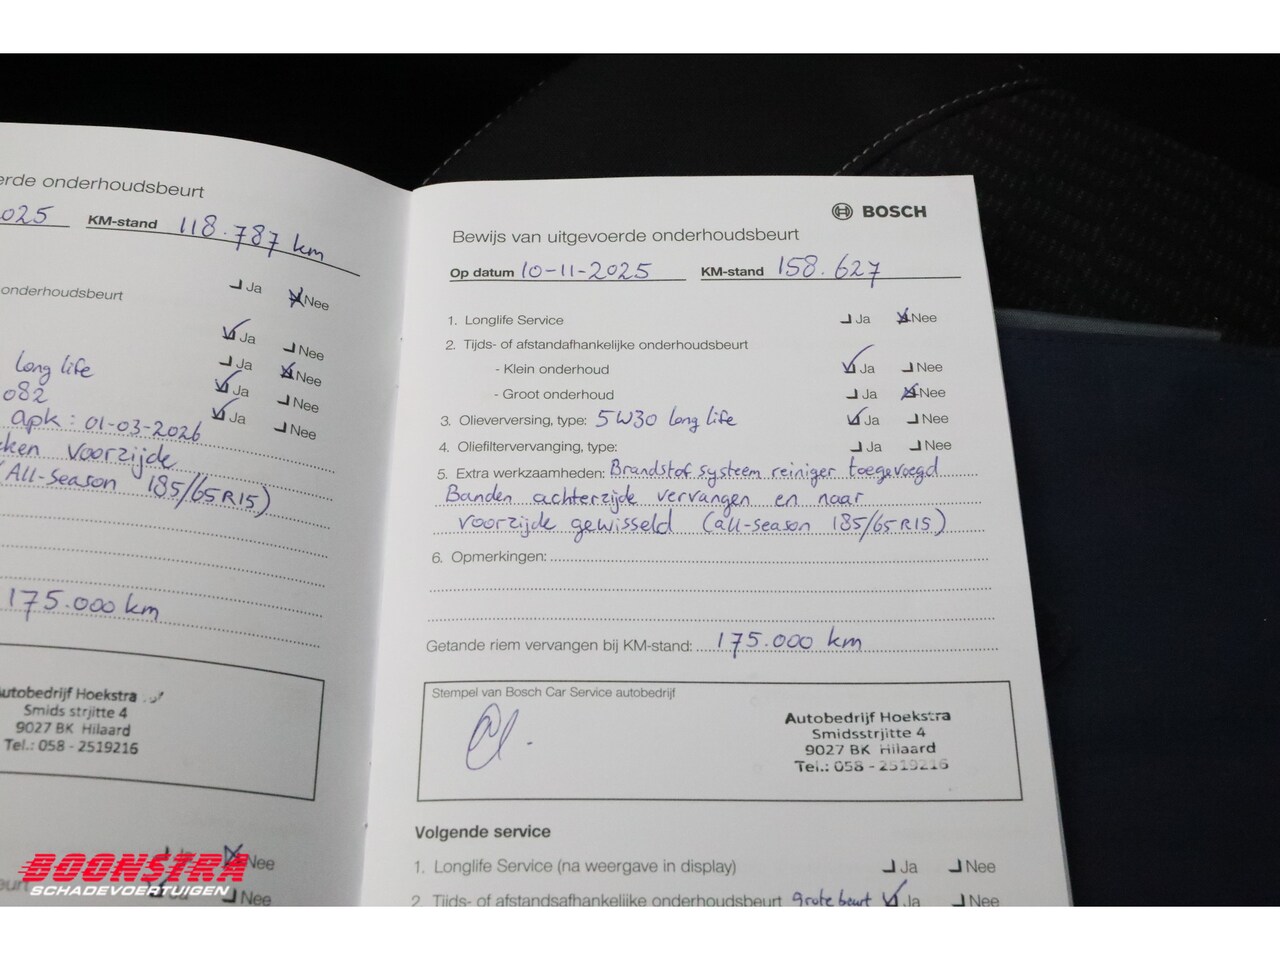 erde onderhoudsbeurt
025 KM-stand 118.787 km
onderhoudsbeurt Ja Nee
Ja Nee
long life Ja Nee
082 Ja Nee
apk: 01-03-2026 Ja Nee
cken voorzijde
(All-season 185/65R15)
175.000 km
Autobedrijf Hoekstra
Smids strjitte 4
9027 BK Hilaard
Tel.: 058 - 2519216
Nee
Ja Nee
BOSCH
Bewijs van uitgevoerde onderhoudsbeurt
Op datum 10-11-2025 KM-stand 158.627
1. Longlife Service Ja Nee
2. Tijds- of afstandafhankelijke onderhoudsbeurt
- Klein onderhoud Ja Nee
- Groot onderhoud Ja Nee
3. Olieverversing, type: 5W30 long life Ja Nee
4. Oliefiltervervanging, type: Ja Nee
5. Extra werkzaamheden: Brandstof systeem reiniger toegevoegd
Banden achterzijde vervangen en naar
voorzijde gewisseld (all-season 185/65R15)
6. Opmerkingen:
Getande riem vervangen bij KM-stand: 175.000 km
Stempel van Bosch Car Service autobedrijf
Autobedrijf Hoekstra
Smidsstrjitte 4
9027 BK Hilaard
Tel.: 058 - 2519216
Volgende service
1. Longlife Service (na weergave in display) Ja Nee
2. Tijds- of afstandsafhankelijke onderhoudsbeurt grote beurt Ja Nee
BOONSTRA
SCHADEVOERTUIGEN